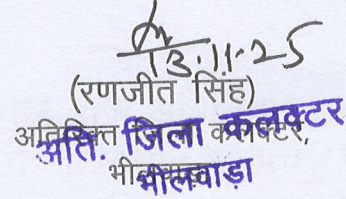 13.11.25
(रणजीत सिंह)
अतिरिक्त जिला कलक्टर,
अति. जिला कलक्टर
भीलवाड़ा
भीलवाड़ा